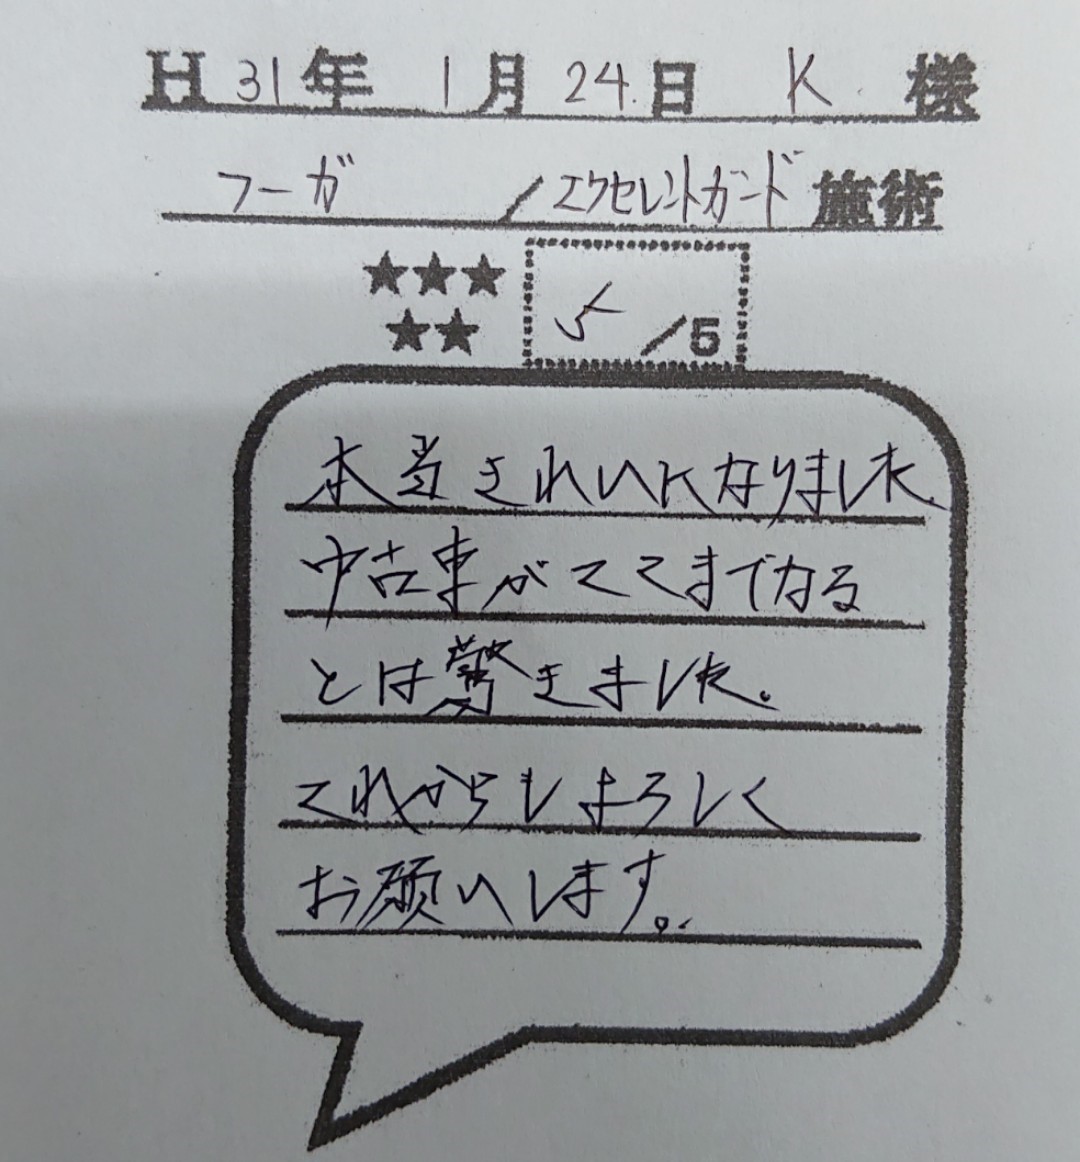 H31年 1月24日 K 様
フーガ / エクセレントガード 施術
★★★
★★ 5/5
本当きれいになりました
中古車がここまでなる
とは驚きました。
これからもよろしく
お願いします。